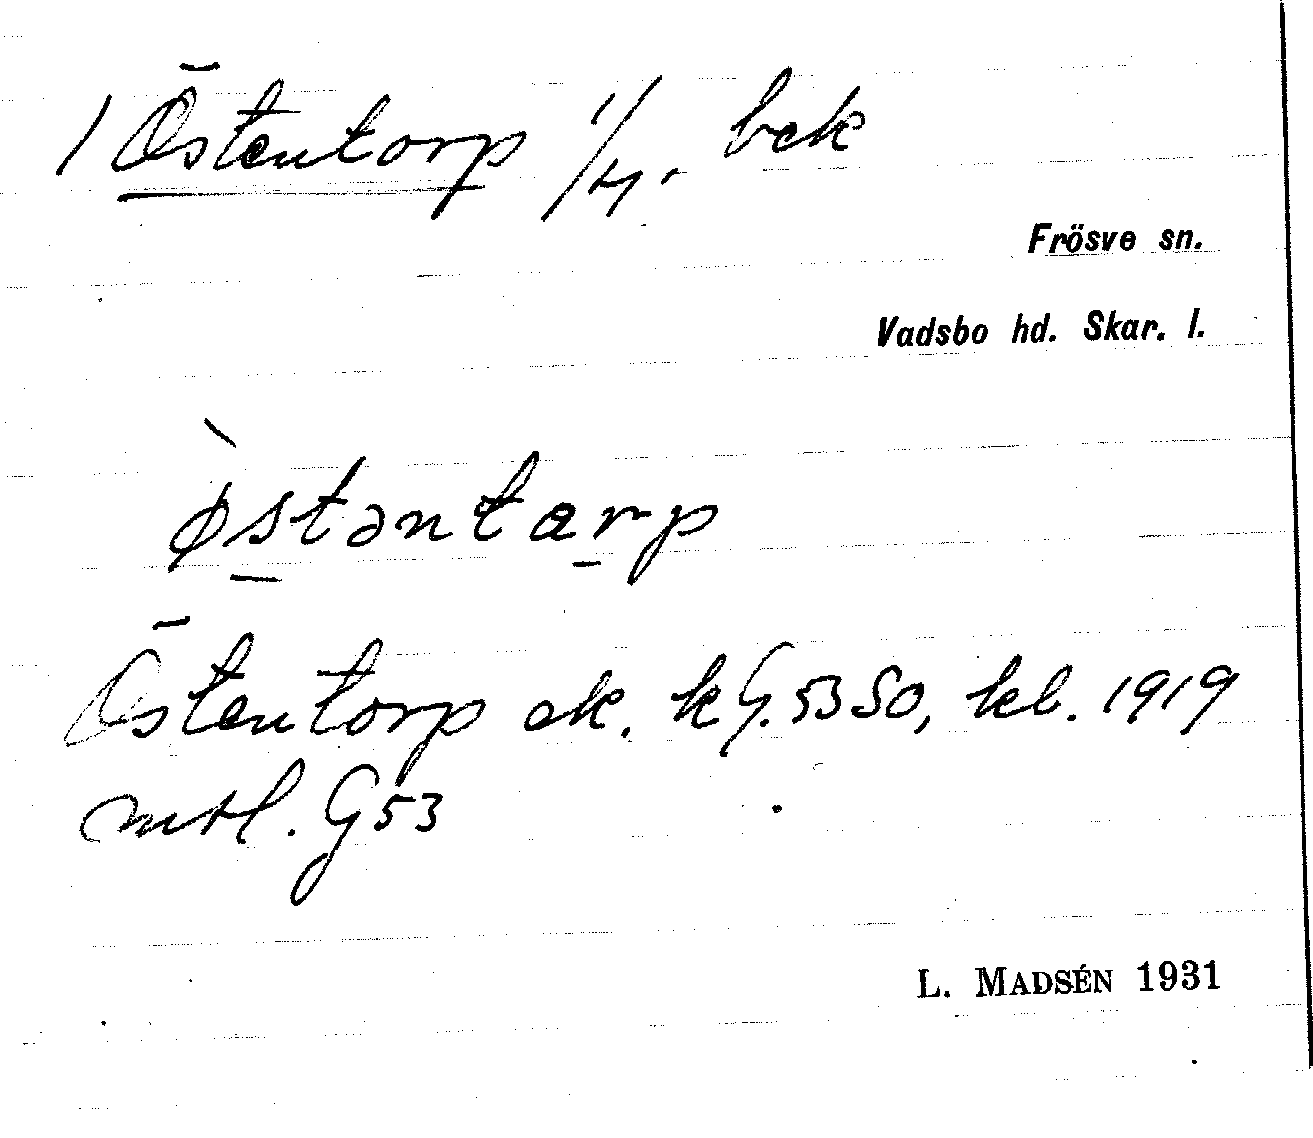 1 Östentorp 1/4. bek
Frösve sn.
Vadsbo hd. Skar. l.
ø̀stəntarp
Östentorp ek. k G. 53 SO, kbl. 1919
mtl. G 53
L. MADSÉN 1931